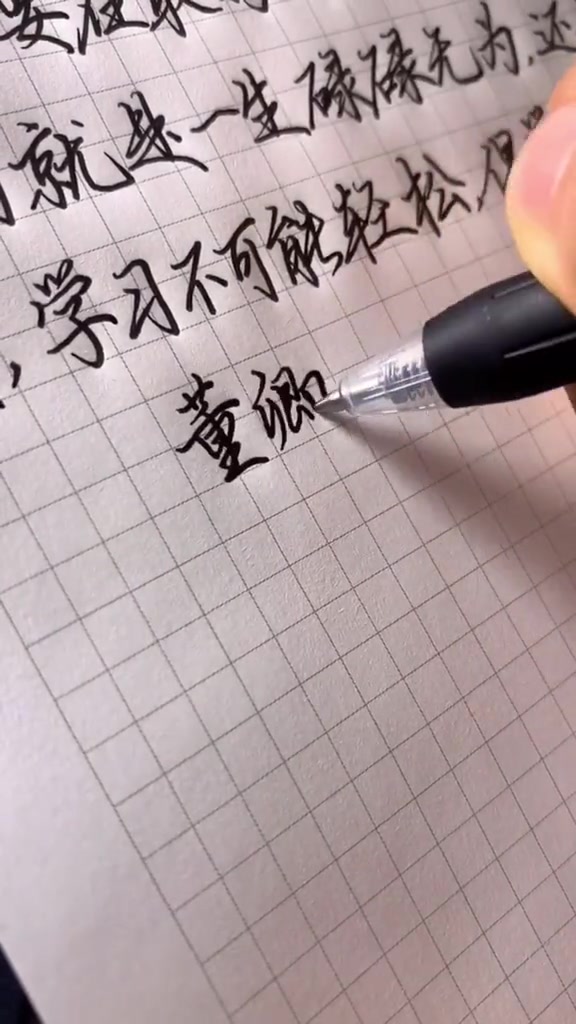 就是一生碌碌无为,还
,学习不可能轻松,但
董卿